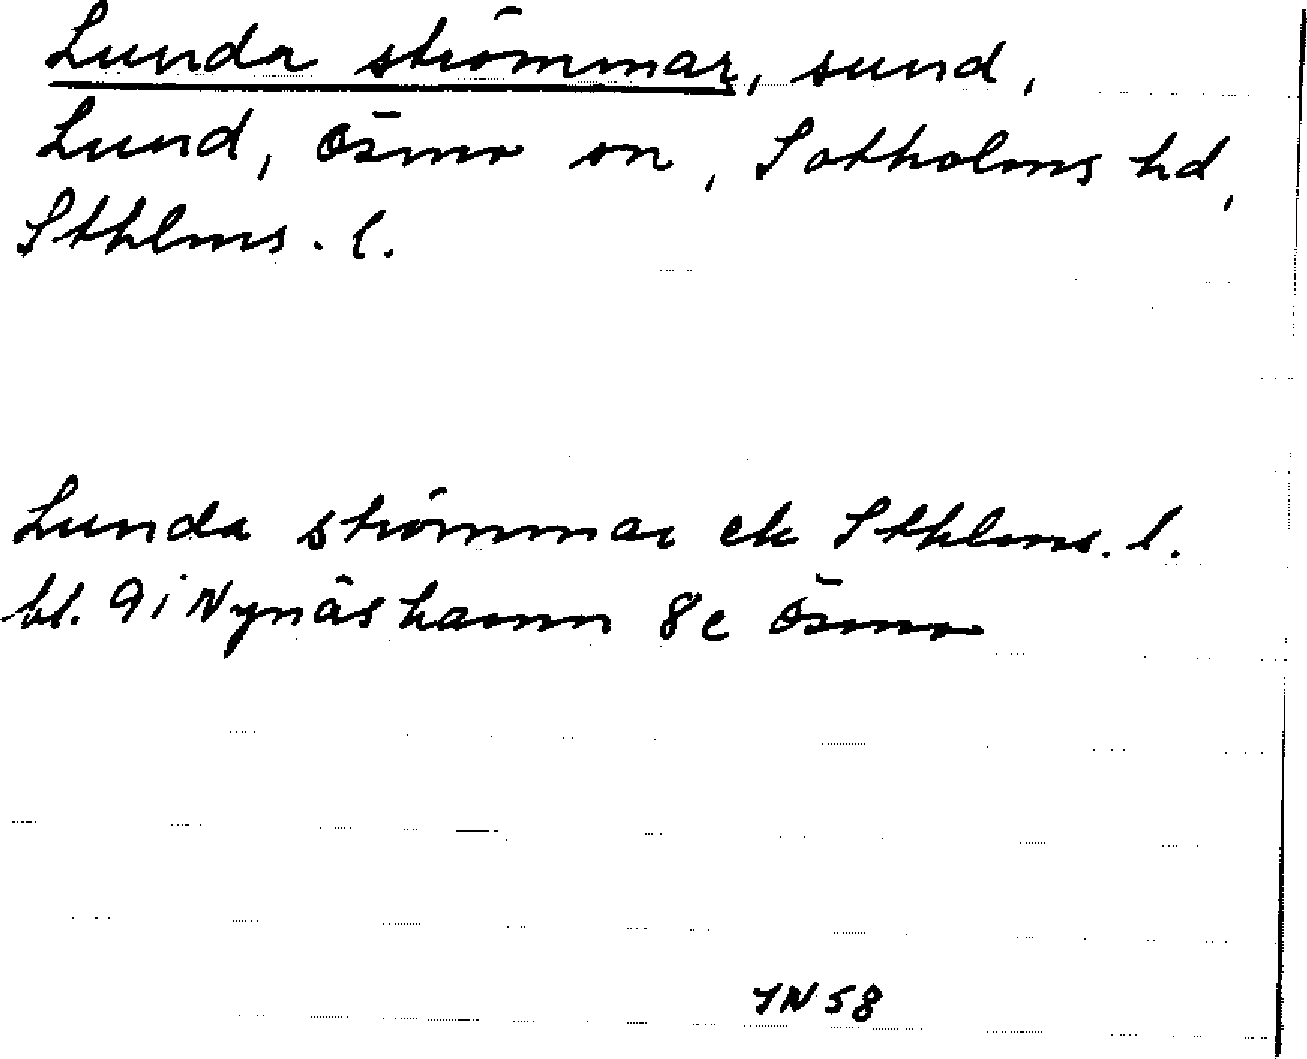 Lunda strömmar, sund,
Lund, Ösmo sn, Sotholms hd,
Sthlms. l.
Lunda strömmar ek Sthlms. l.
bl. 9i Nynäshamn 8c Ösmo
YN 58